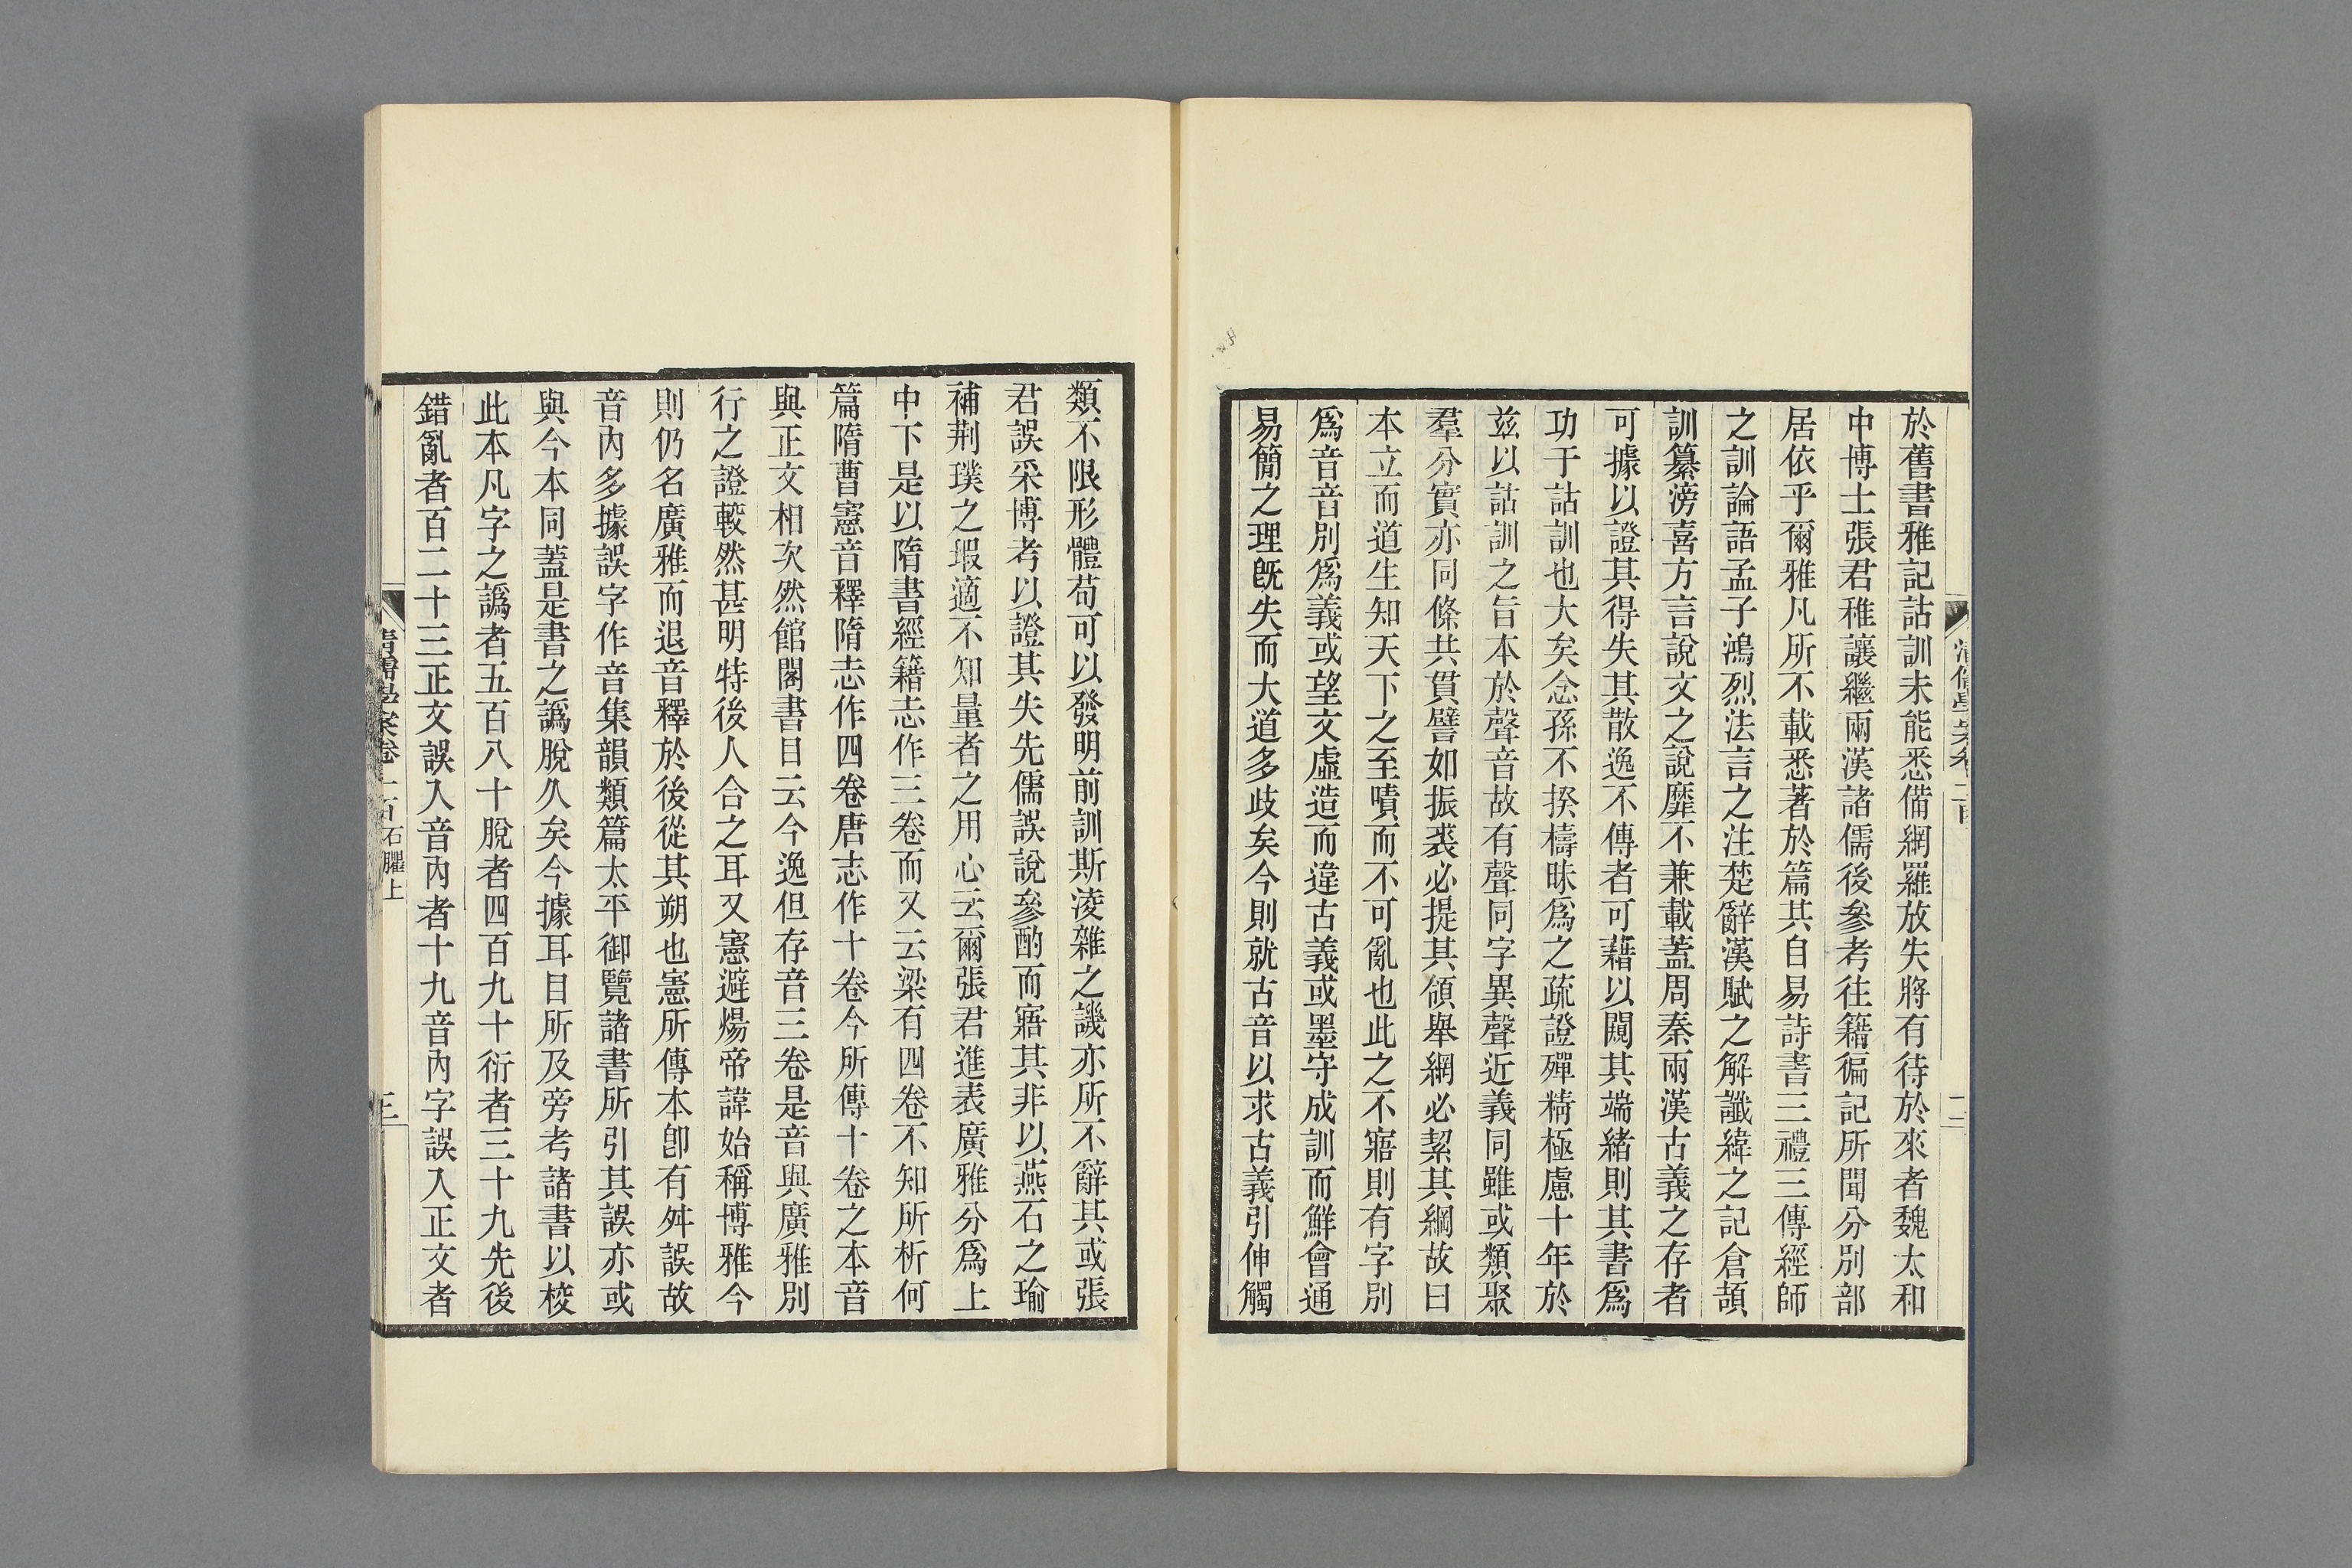 於舊書雅記詁訓未能悉備網羅放失將有待於來者魏太和
中博士張君稚讓繼兩漢諸儒後參考往籍徧記所聞分別部
居依乎爾雅凡所不載悉著於篇其自易詩書三禮三傳經師
之訓論語孟子鴻烈法言之注楚辭漢賦之解讖緯之記倉頡
訓纂滂喜方言說文之說靡不兼載蓋周秦兩漢古義之存者
可據以證其得失其散逸不傳者可藉以闚其端緒則其書爲
功于詁訓也大矣念孫不揆檮昧爲之疏證殫精極慮十年於
茲以詁訓之旨本於聲音故有聲同字異聲近義同雖或類聚
羣分實亦同條共貫譬如振裘必提其領舉網必挈其綱故曰
本立而道生知天下之至嘖而不可亂也此之不寤則有字別
爲音音別爲義或望文虛造而違古義或墨守成訓而鮮會通
易簡之理旣失而大道多歧矣今則就古音以求古義引伸觸
類不限形體苟可以發明前訓斯淩雜之譏亦所不辭其或張
君誤采博考以證其失先儒誤說參酌而寤其非以燕石之瑜
補荆璞之瑕適不知量者之用心云爾張君進表廣雅分爲上
中下是以隋書經籍志作三卷而又云梁有四卷不知所析何
篇隋曹憲音釋隋志作四卷唐志作十卷今所傳十卷之本音
與正文相次然館閣書目云今逸但存音三卷是音與廣雅別
行之證較然甚明特後人合之耳又憲避煬帝諱始稱博雅今
則仍名廣雅而退音釋於後從其朔也憲所傳本卽有舛誤故
音內多據誤字作音集韻類篇太平御覽諸書所引其誤亦或
與今本同蓋是書之譌脫久矣今據耳目所及旁考諸書以校
此本凡字之譌者五百八十脫者四百九十衍者三十九先後
錯亂者百二十三正文誤入音內者十九音內字誤入正文者
清儒學案卷一百石臞上
三